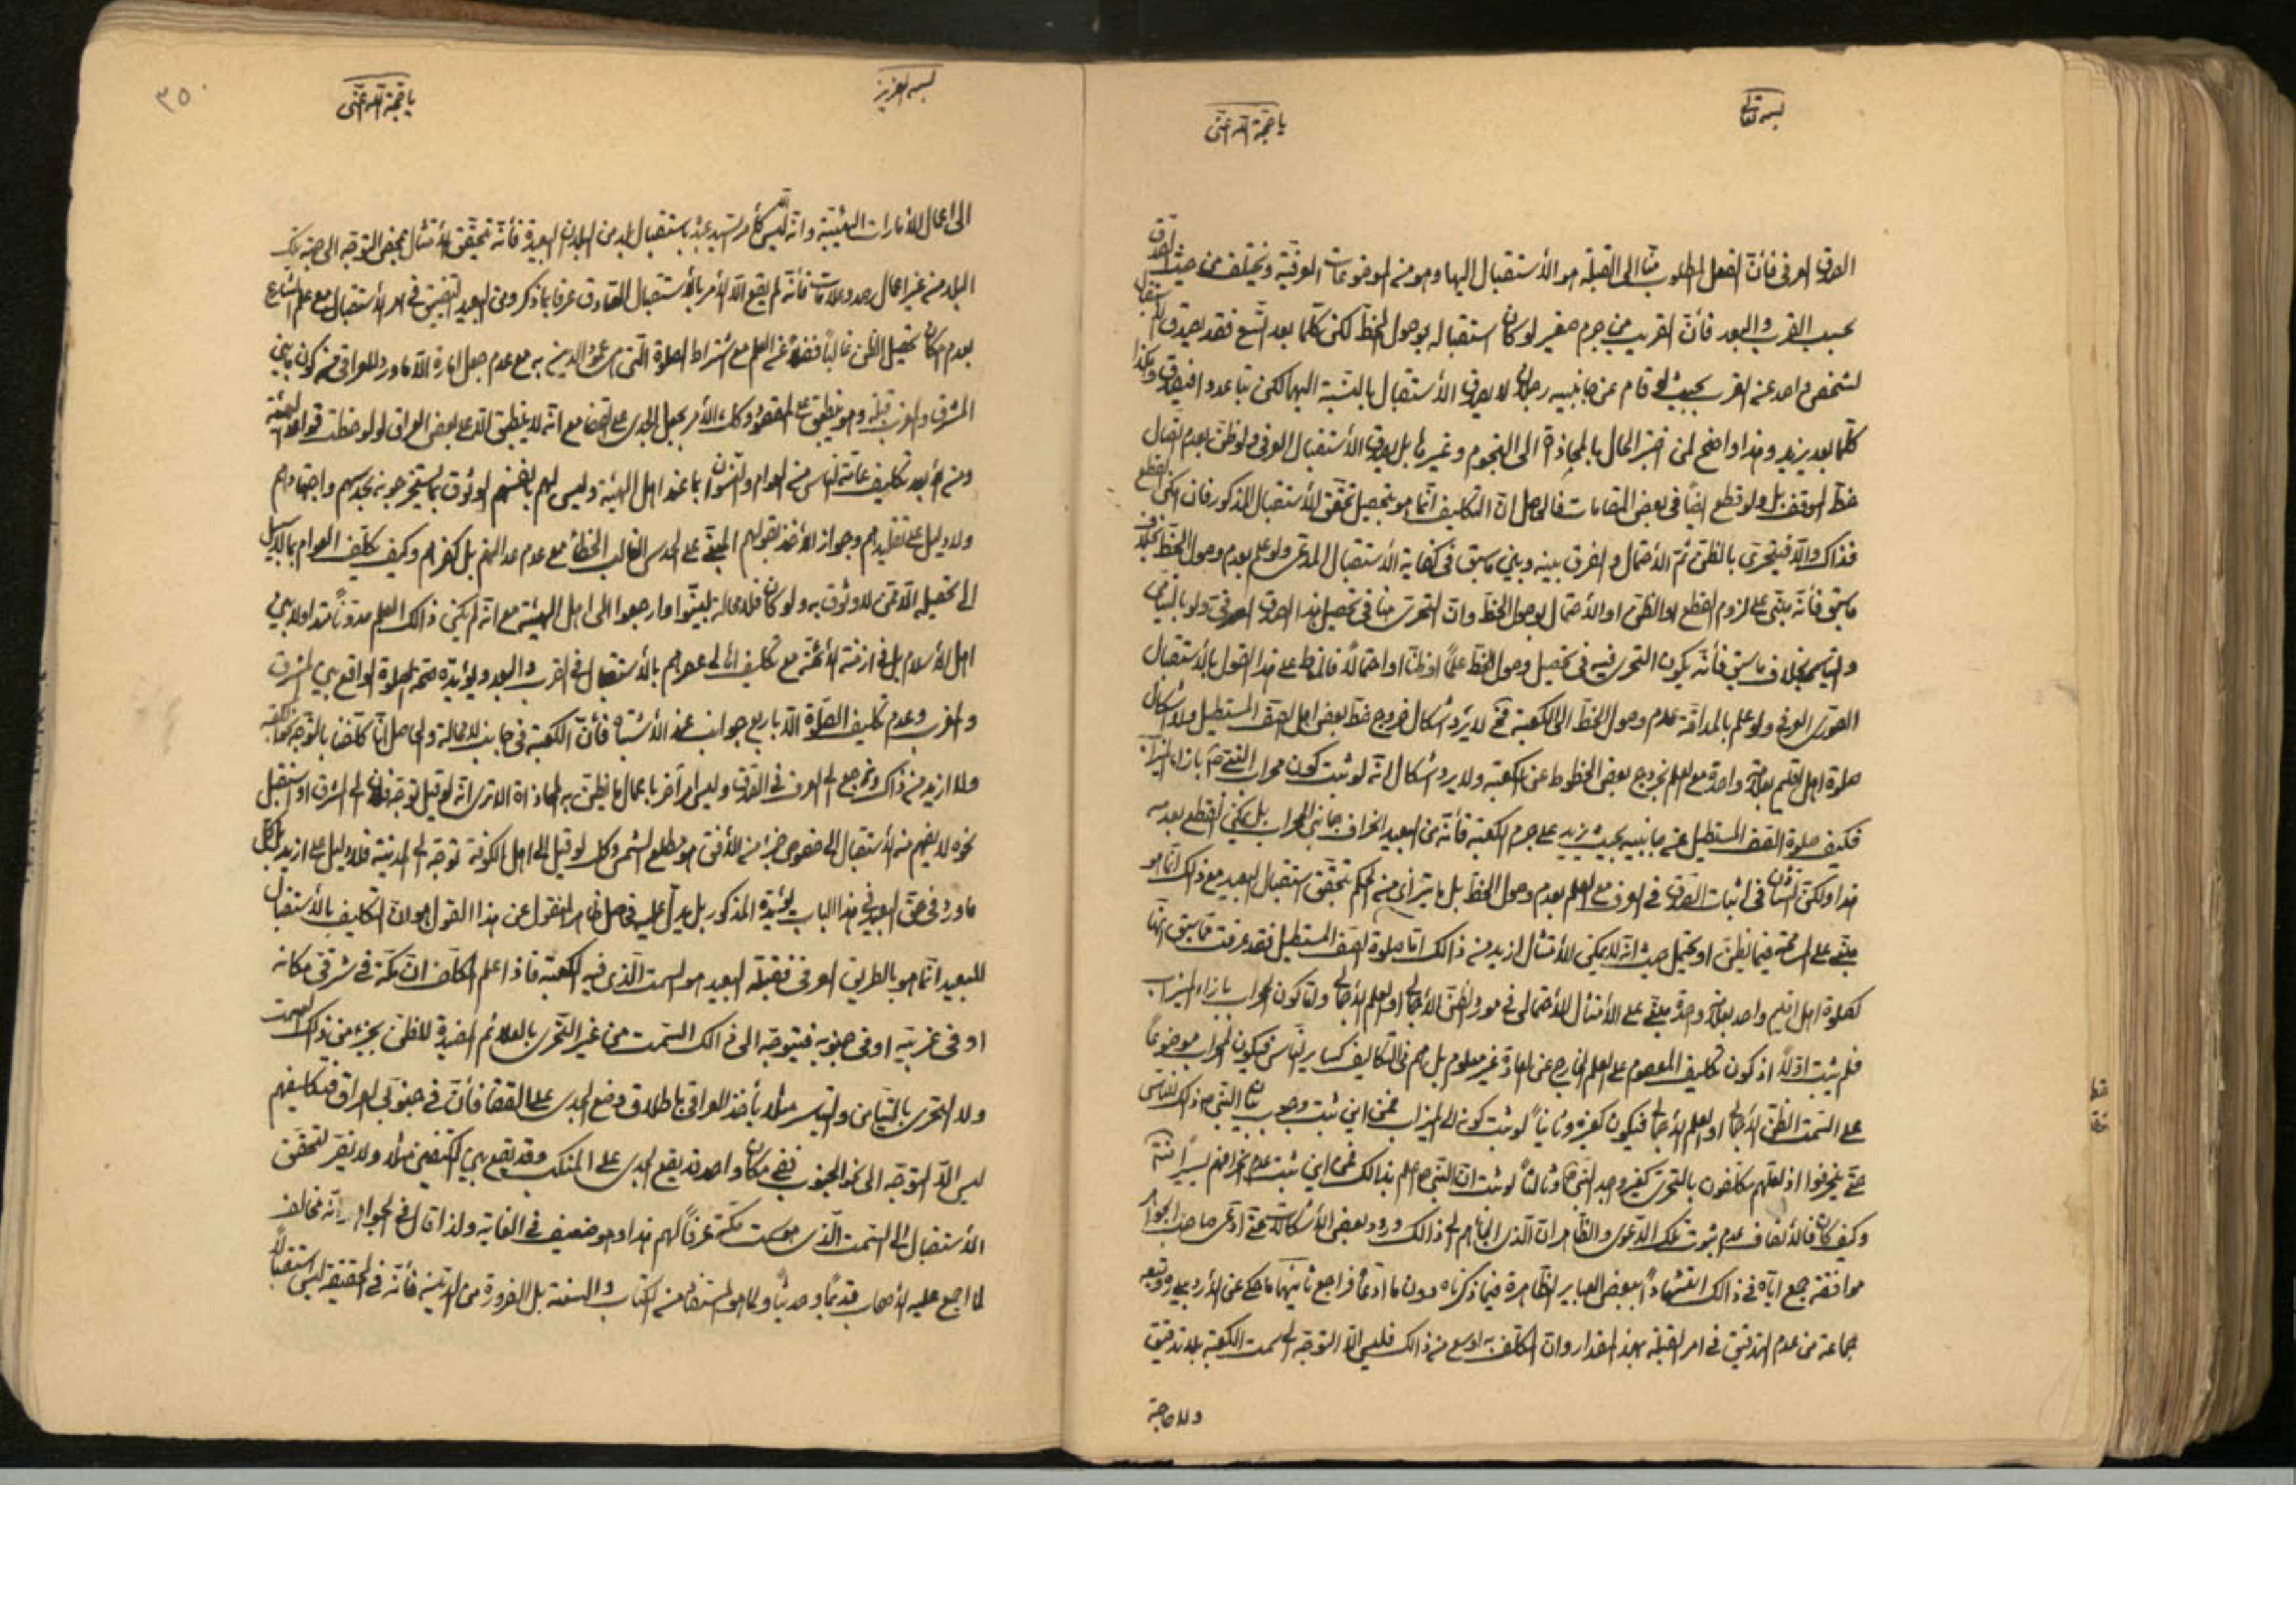 بسمه تعالى
يا حجة الله اغثنى
الصدق العرفى فأن الفعل المطلوب منا الى القبلة هو الأستقبال اليها وهو من الموضوعات العرفية ويختلف من حيث الصدق
بحسب القرب والبعد فأن القريب من جرم صغير لو كان استقباله بوصول الخط لكن كلما بعد اتسع فقد يصدق الاستقبال
لشخص واحد عند القرب بحيث لو قام عن جانبيه رجلان لا يصدق الأستقبال بالنسبة اليهما لكن تباعدوا فيصدق وهكذا
كلما بعد يزيد وهذا واضح لمن اختبر الحال بالمحاذاة الى النجوم وغيرها بل يصدق الأستقبال العرفى ولو ظن بعدم اتصال
خط الموقف بل ولو قطع ايضا فى بعض المقامات فالحاصل ان التكليف انما هو بتحصيل تحقق الأستقبال المذكور فان امكن القطع
فذاك والا فيتحرى بالظن ثم الأحتمال والفرق بينه وبين ما سبق فى كفاية الأستقبال المدعى ولو علم بعدم وصول الخط بخلاف
ما سبق فأنه مبنى على لزوم القطع او الظن او الأحتمال بوصول الخط وان التحرى هنا فى تحصيل هذا الصدق العرفى ولو بالتيامن
والتياسر بخلاف ما سبق فأنه يكون التحرى فيه فى تحصيل وصول الخط علما او ظنا او احتمالا فالمناط على هذا القول بالأستقبال
الصورى العرفى ولو علم بالمداقة عدم وصول الخط الى الكعبة فح لا يرد اشكال خروج خط بعض اهل الصف المستطيل ولا اشكال
صلوة اهل اقليم بعلامة واحدة مع العلم بخروج بعض الخطوط عن الكعبة ولا يرد اشكال انه لو ثبت كون محراب النبى ص بازاء الميزاب
فكيف صلوة الصف المستطيل عن جانبيه بحيث يزيد على جرم الكعبة فأنه من البعيد انحراف جانبى المحراب بل يمكن القطع بعدمه
هذا ولكن الشأن فى اثبات الصدق فى العرف مع العلم بعدم وصول الخط بل ما يترائى من الحكم بتحقق استقبال البعيد مع ذلك انما هو
مبنى على المسامحة فيما يظن او يحتمل حيث انه لا يمكن الأمتثال ازيد من ذالك اما صلوة الصف المستطيل فقد عرفت مما سبق انها
كصلوة اهل اقليم واحد بعلامة واحدة مبنى على الأمتثال الأحتمالى فى مورد الظن الأجمالى او العلم الأجمالى واما كون المحراب بازاء الميزاب
فلم يثبت اولا اذ كون تكليف المعصوم على العلم الخارج عن العادة غير معلوم بل هم فى التكاليف كسائر الناس فيكون المحراب موضوعا
على السمت الظن الأجمالى او العلم الأجمالى فيكون كغيره وثانيا لو ثبت كونه الى الميزاب فمن اين ثبت وجوب بيان النبى ص ذلك للناس
حتى ينحرفوا اذ لعلهم مكلفون بالتحرى كغير مسجد النبى ص وثالثا لو ثبت ان النبى ص اعلم بذالك فمن اين ثبت عدم انحرافهم يسيرا منه
وكيف كان فالأنصاف عدم ثبوت تلك الدعوى والظاهر ان الذى الجأهم الى ذالك ورود بعض الأشكالات حتى ادعى صاحب الجواهر
موافقة جمع اياه فى ذالك استشهادا ببعض العباير الظاهرة فيما ذكرناه دون ما ادعاه فراجع ثانيهما ما حكى عن الأردبيلى وتبعه
جماعة من عدم التدقيق فى امر القبلة بهذا المقدار وان المكلف به اوسع من ذالك فليس الا التوجه الى سمت الكعبة بلا تدقيق
ولا حاجة
بسمه العزيز
يا حجة الله اغثنى
٣٥٠
الى اعمال الأمارات الهيئية وانه ليس كأمر السيد عبده باستقبال بلد من البلدان البعيدة فأنه يتحقق الأمتثال بمحض التوجه الى جهة تلك
البلد من غير اعمال رصد وعلامات فأنه لم يقع الا الأمر بالأستقبال الصادق عرفا بما ذكر ومن البعيد التضييق فى امر الأستقبال مع علم الشارع
بعدم امكان تحصيل الظن غالبا فضلا عن العلم مع اشتراط الصلوة التى هى عمود الدين به مع عدم جعل امارة الا ما ورد للعراقى من كون ما بين
المشرق والمغرب قبلة وهو ينطبق على المقصود وكك الأمر بجعل الجدى على القفا مع انه لا ينطبق الا على بعض العراق لو لوحظت قواعد الهيئة
ومن الأبعد تكليف عامة الناس من العوام والنسوان بما عند اهل الهيئة وليس لهم بانفسهم الوثوق بما يستخرجونه بحدسهم واجتهادهم
ولا دليل على تقليدهم وجواز الأخذ بقولهم المبنى على الحدس الغالب الخطأ مع عدم عدالتهم بل كفرهم وكيف يكلف العوام بما لا سبيل
الى تحصيله الا ممن لا وثوق به ولو كان فلا محالة لبينوا وارجعوا الى اهل الهيئة مع انه لم يكن ذالك العلم مدونا متداولا بين
اهل الأسلام بل فى ازمنة الأئمة مع تكليف اهالى عصرهم بالأستقبال فى القرب والبعد ويؤيده صحة الصلوة الواقع بين المشرق
والمغرب وعدم تكليف الصلوة الا باربع جوانب عند الأشتباه فأن الكعبة فى جانب لا محالة والحاصل انا كلفنا بالتوجه نحو الكعبة
ولا ازيد من ذاك ونرجع الى العرف فى الصدق وليس امر آخر باعمال ما يظن به المحاذاة الا ترى انه لو قيل توجه فلان الى المشرق او استقبل
نحوه لا يفهم منه الأستقبال الى خصوص جزء من الأفق هو مطلع الشمس وكك لو قيل الى اهل الكوفة توجه الى المدينة فلا دليل على ازيد بل كل
ما ورد فى حق البعيد فى هذا الباب يؤيده المذكور بل يدل عليه فحاصل ظاهر المنقول عن هذا القول هو ان التكليف بالأستقبال
للبعيد انما هو بالطريق العرفى فقبلة البعيد هو السمت الذى فيه الكعبة فاذا علم المكلف ان مكة فى شرقى مكانه
او فى غربيه او فى جنوبه فيتوجه الى ذالك السمت من غير التحرى بالعلائم المفيدة للظن بجزء من ذلك السمت
ولا التحرى بالتيامن والتياسر مثلا يأخذ العراقى باطلاق وضع الجدى على القفا فأن فى جنوب العراق فتكليفهم
ليس الا التوجه الى نحو الجنوب ففى مكان واحد قد يقع الجدى على المنكب وقد يقع بين الكتفين مثلا ولا يضر لتحقق
الأستقبال الى السمت الذى هو سمت مكة عرفا لهم هذا وهو ضعيف فى الغاية ولذا قال فى الجواهر انه مخالف
لما اجمع عليه الأصحاب قديما وحديثا ولما هو المستفاد من الكتاب والسنة بل الضرورة من الدين فأنه فى الحقيقة ليس استقبالا